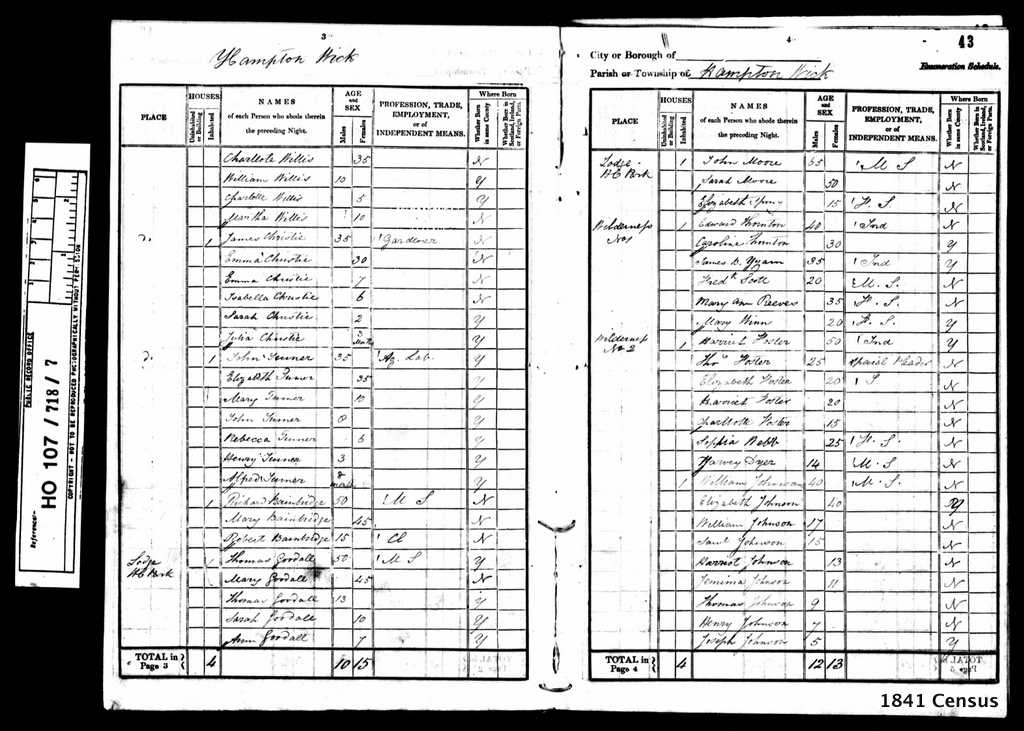 3
Hampton Wick
PLACE
HOUSES
Uninhabited or Building
Inhabited
NAMES
of each Person who abode therein
the preceding Night.
AGE
and
SEX
Males
Females
PROFESSION, TRADE,
EMPLOYMENT,
or of
INDEPENDENT MEANS.
Where Born
Whether Born in same County
Whether Born in Scotland, Ireland, or Foreign Parts.
Charllote Willis 35 N
William Willis 10 Y
Charlotte Willis 5 Y
Martha Willis 10 N
Do. 1 James Christie 35 Gardener N
Emma Christie 30 N
Emma Christie 7 N
Isabella Christie 6 N
Sarah Christie 2 Y
Julia Christie 3 Months Y
Do. 1 John Turner 35 Ag. Lab. Y
Elizabeth Turner 35 Y
Mary Turner 10 Y
John Turner 8 Y
Rebecca Turner 6 Y
Henry Turner 3 Y
Alfred Turner Y
1 Richard Bainbridge 50 M S N
Mary Bainbridge 45 N
Robert Bainbridge 15 Cl N
Lodge 1 Thomas Goodall 50 M S Y
HC Park Mary Goodall 45 N
Thomas Goodall 13 Y
Sarah Goodall 10 Y
Ann Goodall 7 Y
TOTAL in Page 3 4 10 15
4
43
City or Borough of
Parish or Township of Hampton Wick
Enumeration Schedule.
PLACE
HOUSES
Uninhabited or Building
Inhabited
NAMES
of each Person who abode therein
the preceding Night.
AGE
and
SEX
Males
Females
PROFESSION, TRADE,
EMPLOYMENT,
or of
INDEPENDENT MEANS.
Where Born
Whether Born in same County
Whether Born in Scotland, Ireland, or Foreign Parts.
Lodge 1 John Moore 65 M S N
HC Park Sarah Moore 50 N
Elizabeth 15 F S N
Wilderness 1 Edward Thornton 40 Ind N
No 1 Caroline Thornton 30 Y
James D. 35 Ind Y
Fredk Scott 20 M. S. N
Mary Ann Reeves 35 F. S. N
Mary Winn 20 F. S. Y
Wilderness 1 Harriet Foster 50 Ind Y
No 2 Thos Foster 25 Special Pleader N
Elizabeth Foster 20 N
Harriet Foster 20 N
Charllote Foster 15 N
Sophia Webb 25 F. S. N
Harvey Dyer 14 M. S N
1 William Johnson 40 M. S. N
Elizabeth Johnson 40 Y
William Johnson 17 N
Saml Johnson 15 N
Harriet Johnson 13 N
Jemima Johnson 11 N
Thomas Johnson 9 N
Henry Johnson 7 N
Joseph Johnson 5 Y
TOTAL in Page 4 4 12 13
PUBLIC RECORD OFFICE
Reference:-
HO 107 / 718 / 7
COPYRIGHT - NOT TO BE REPRODUCED PHOTOGRAPHICALLY WITHOUT PERMISSION
1841 Census